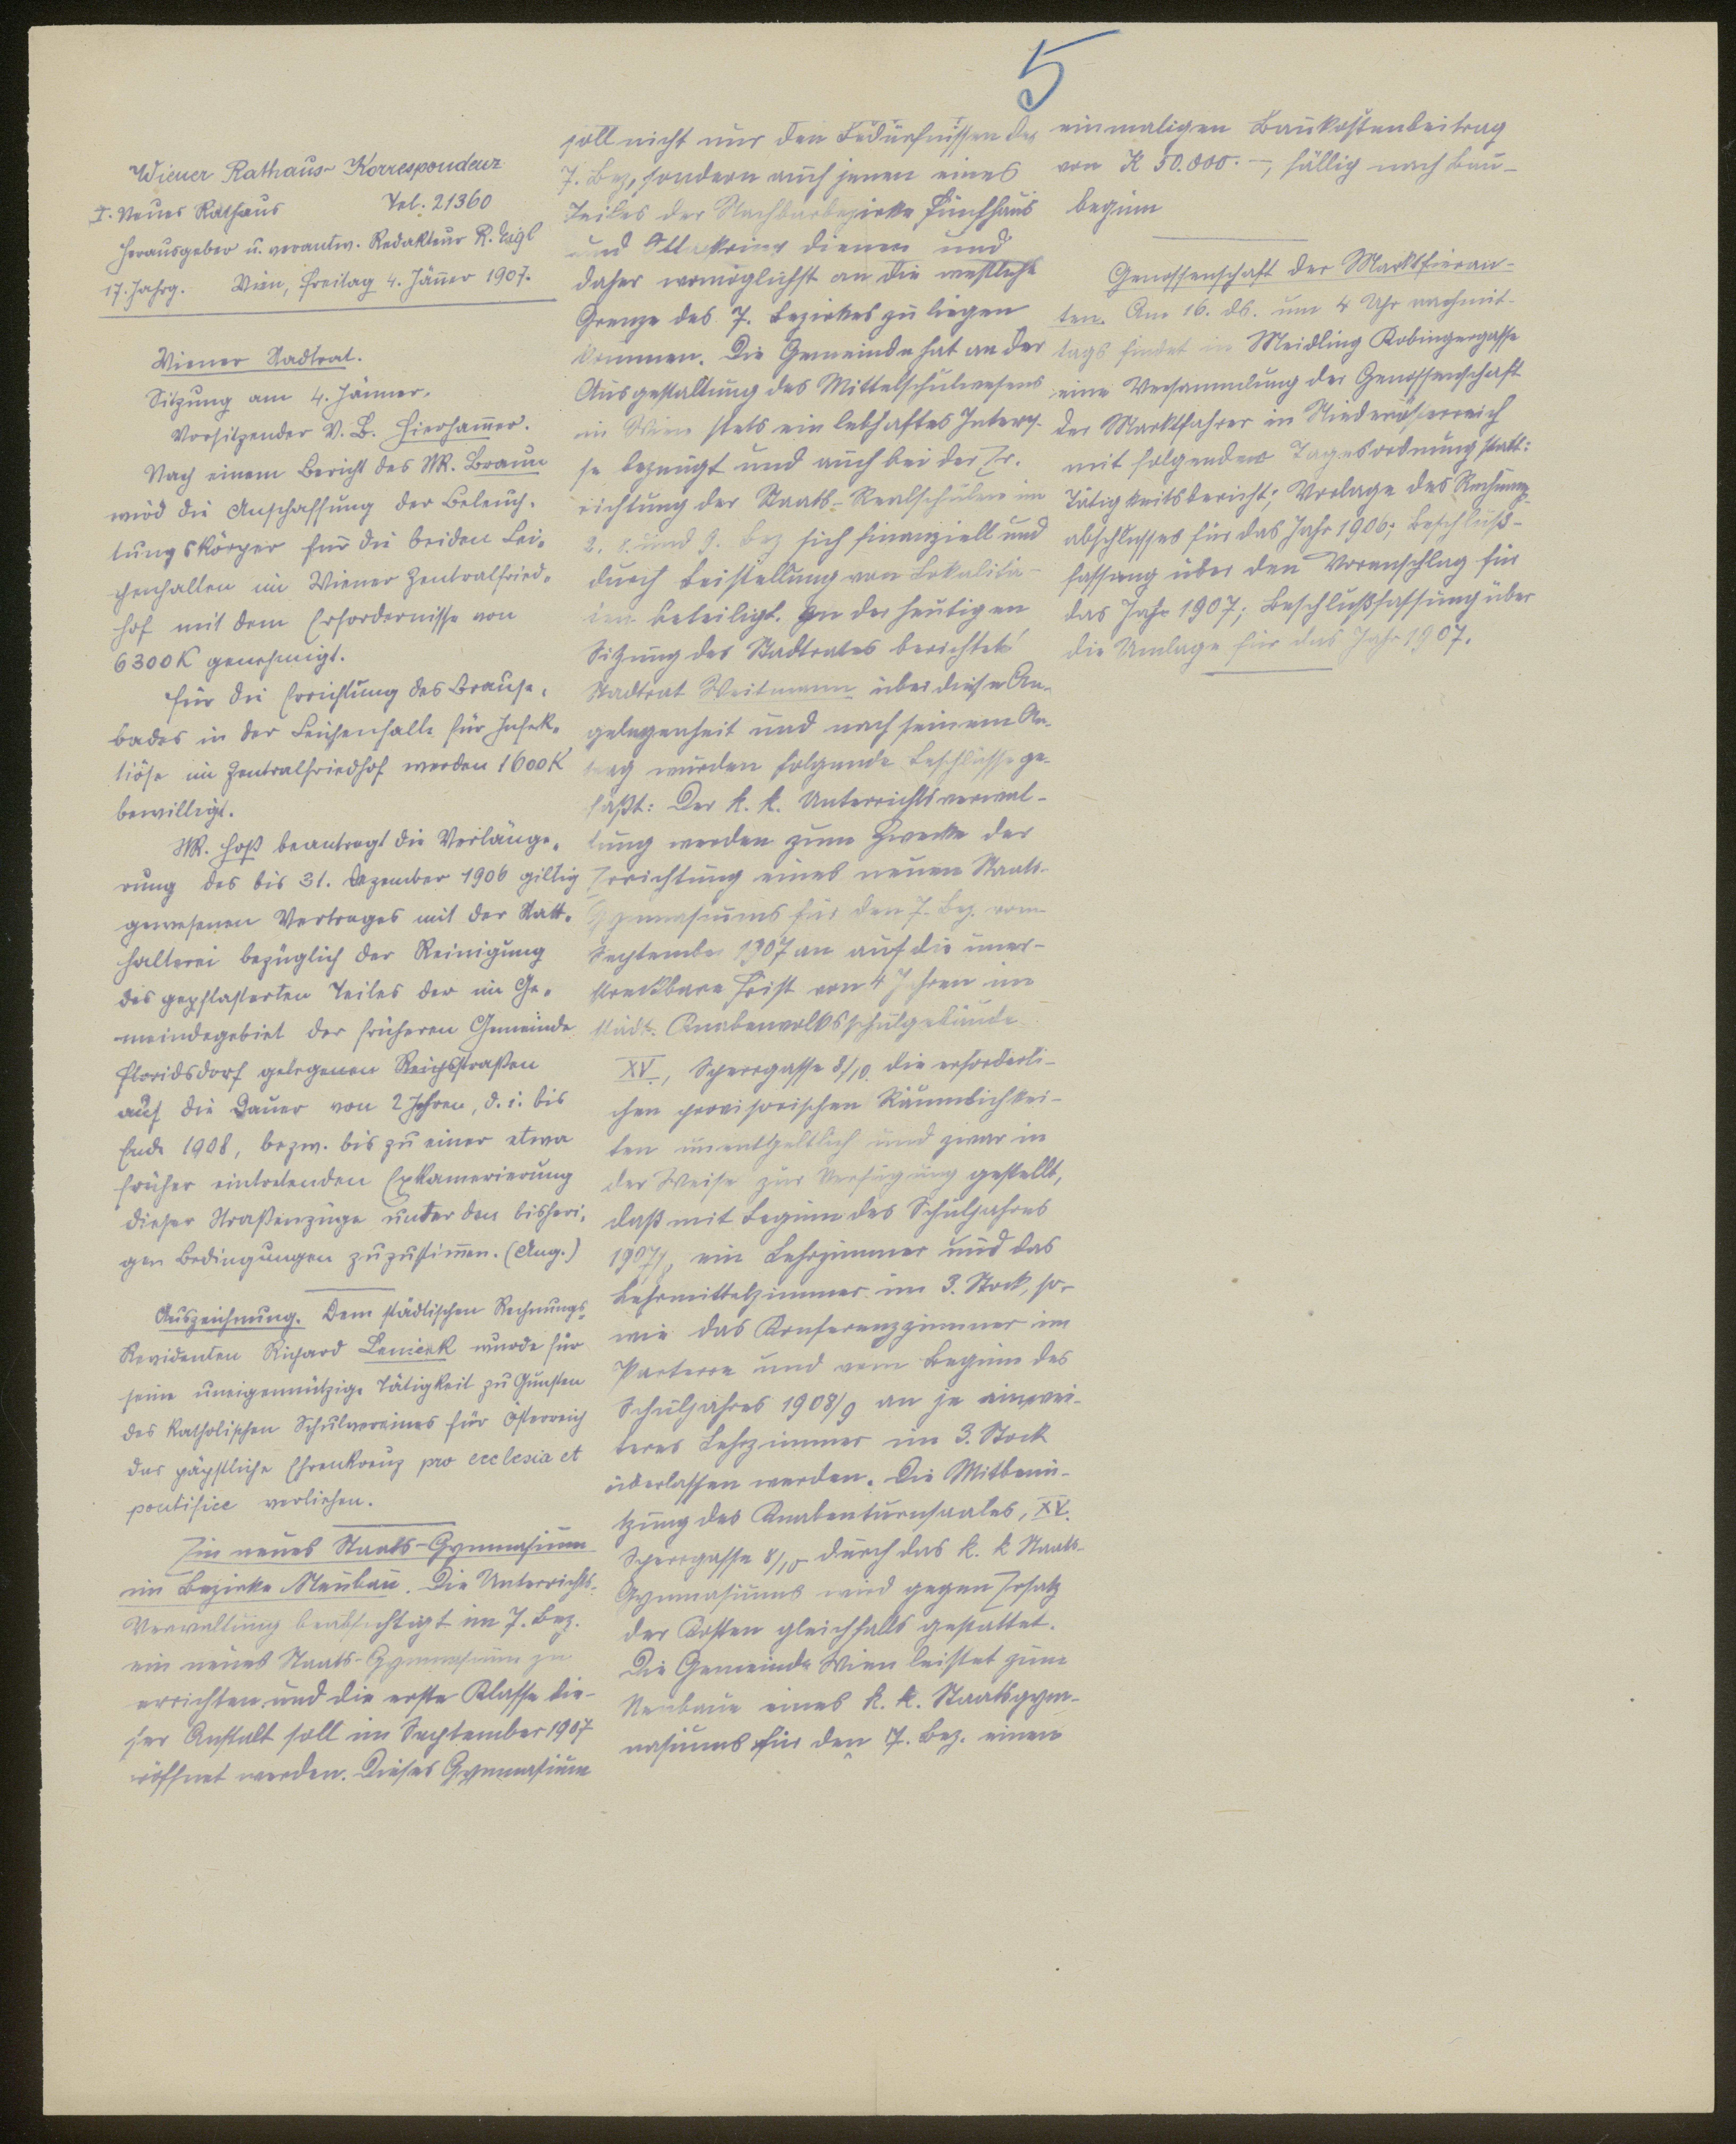 5
Wiener Rathaus-Korrespondenz
I. Neues Rathaus Tel. 21360
Herausgeber u. verantw. Redakteur R. Tagl
17. Jahrg. Wien, Freitag 4. Jänner 1907.
Wiener Stadtrat.
Sitzung am 4. Jänner.
Vorsitzender V. B. Hierhammer.
Nach einem Bericht des StR. Braun
wird die Anschaffung der Beleuch-
tungskörper für die beiden Lei-
chenhallen im Wiener Zentralfried-
hof mit dem Erfordernisse von
6300 K genehmigt.
Für die Errichtung des Brause-
bades in der Leichenhalle für Infek-
tiöse im Zentralfriedhof werden 1600 K
bewilligt.
StR. Hoß beantragt die Verlänge-
rung des bis 31. Dezember 1906 giltig
gewesenen Vertrages mit der Statt-
halterei bezüglich der Reinigung
des gepflasterten Teiles der im Ge-
meindegebiet der früheren Gemeinde
Floridsdorf gelegenen Reichsstraßen
auf die Dauer von 2 Jahren, d. i. bis
Ende 1908, bezw. bis zu einer etwa
früher eintretenden Exkamerierung
dieser Straßenzüge unter den bisheri-
gen Bedingungen zuzustimmen. (Ang.)
Auszeichnung. Dem städtischen Rechnungs-
Revidenten Richard Lenicek wurde für
seine uneigennützige Tätigkeit zu Gunsten
des katholischen Schulvereines für Österreich
das päpstliche Ehrenkreuz pro ecclesia et
pontifice verliehen.
Ein neues Staats-Gymnasium
im Bezirke Neubau. Die Unterrichts-
Verwaltung beabsichtigt im 7. Bez.
ein neues Staats-Gymnasium zu
errichten und die erste Klasse die-
ser Anstalt soll im September 1907
eröffnet werden. Dieses Gymnasium
soll nicht nur den Bedürfnissen des
7. Bez, sondern auch jenen eines
Teiles der Nachbarbezirke Fünfhaus
und Ottakring dienen und
daher womöglichst an die westliche
Grenze des 7. Bezirkes zu liegen
kommen. Die Gemeinde hat an der
Ausgestaltung des Mittelschulwesens
in Wien stets ein lebhaftes Interes-
se bezeugt und auch bei der Er-
richtung der Staats-Realschulen im
2. 8. und 9. Bez sich finanziell und
durch Beistellung von Lokalitä-
ten beteiligt. In der heutigen
Sitzung des Stadtrates berichtet
Stadtrat Weitmann über diese An-
gelegenheit und nach seinem An-
trag wurden folgende Beschlüsse ge-
faßt: Der k. k. Unterrichtsverwal-
tung werden zum Zwecke der
Errichtung eines neuen Staats-
Gymnasiums für den 7. Bez. vom
September 1907 an auf die uner-
streckbare Frist von 4 Jahren im
städt. Knabenvolksschulgebäude
XV., Sperrgasse 8/10 die erforderli-
chen provisorischen Räumlichkei-
ten unentgeltlich und zwar in
der Weise zur Verfügung gestellt,
daß mit Beginn des Schuljahres
1907/8 ein Lehrzimmer und das
Lehrmittelzimmer im 3. Stock, so-
wie das Konferenzzimmer im
Parterre und vom Beginn des
Schuljahres 1908/9 an je ein wei-
teres Lehrzimmer im 3. Stock
überlassen werden. Die Mitbenü-
tzung des Knabenturnsaales, XV.
Sperrgasse 8/10 durch das k. k Staats-
Gymnasiums wird gegen Ersatz
der Kosten gleichfalls gestattet.
Die Gemeinde Wien leistet zum
Neubaue eines k. k. Staatsgym-
nasiums für den 7. Bez. einen
einmaligen Baukostenbeitrag
von K 50.000.-, fällig nach Bau-
beginn
Genossenschaft der Marktfieran-
ten. Am 16. ds. um 4 Uhr nachmit-
tags findet in Meidling Kobingergasse
eine Versammlung der Genossenschaft
der Marktfahrer in Niederösterreich
mit folgender Tagesordnung statt:
Tätigkeitsbericht; Vorlage des Rechnungs-
abschlusses für das Jahr 1906; Beschluß-
fassung über den Voranschlag für
das Jahr 1907; Beschlußfassung über
die Umlage für das Jahr 1907.